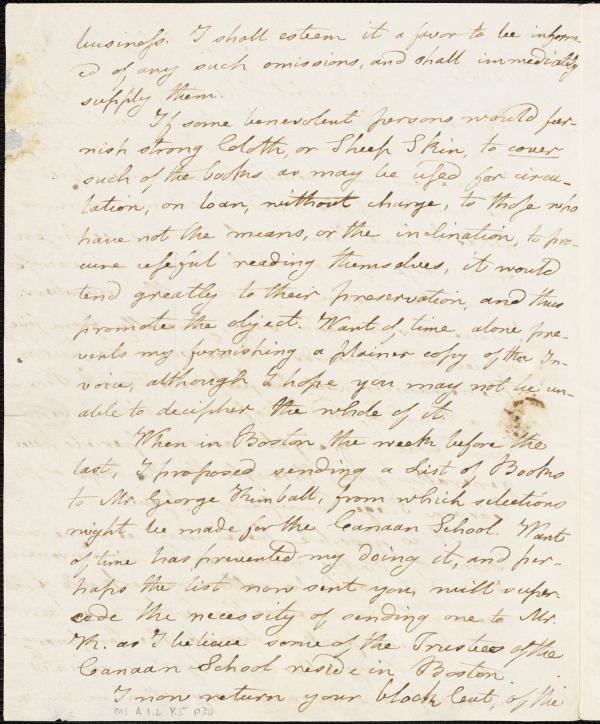 business. I shall esteem it a favor to be inform-
ed of any such omissions, and shall immediately
supply them.
If some benevolent persons would fur-
nish strong Cloth, or Sheep Skin, to cover
such of the books as may be used for circu-
lation, on loan, without charge, to those who
have not the means, or the inclination, to pro-
cure useful reading themselves, it would
tend greatly to their preservation, and thus
promote the object. Want of time alone pre-
vents my furnishing a plainer copy of the In-
voice, although I hope you may not be un-
able to decipher the whole of it.
When in Boston the week before the
last, I proposed sending a List of Books
to Mr. George Kimball, from which selections
might be made for the Canaan School. Want
of time has prevented my doing it, and per-
haps the list now sent you, will super-
cede the necessity of sending one to Mr.
K. as I believe some of the Trustees of the
Canaan School reside in Boston
I now return your block Cut, of the
MS A.1.2 V.5 p30